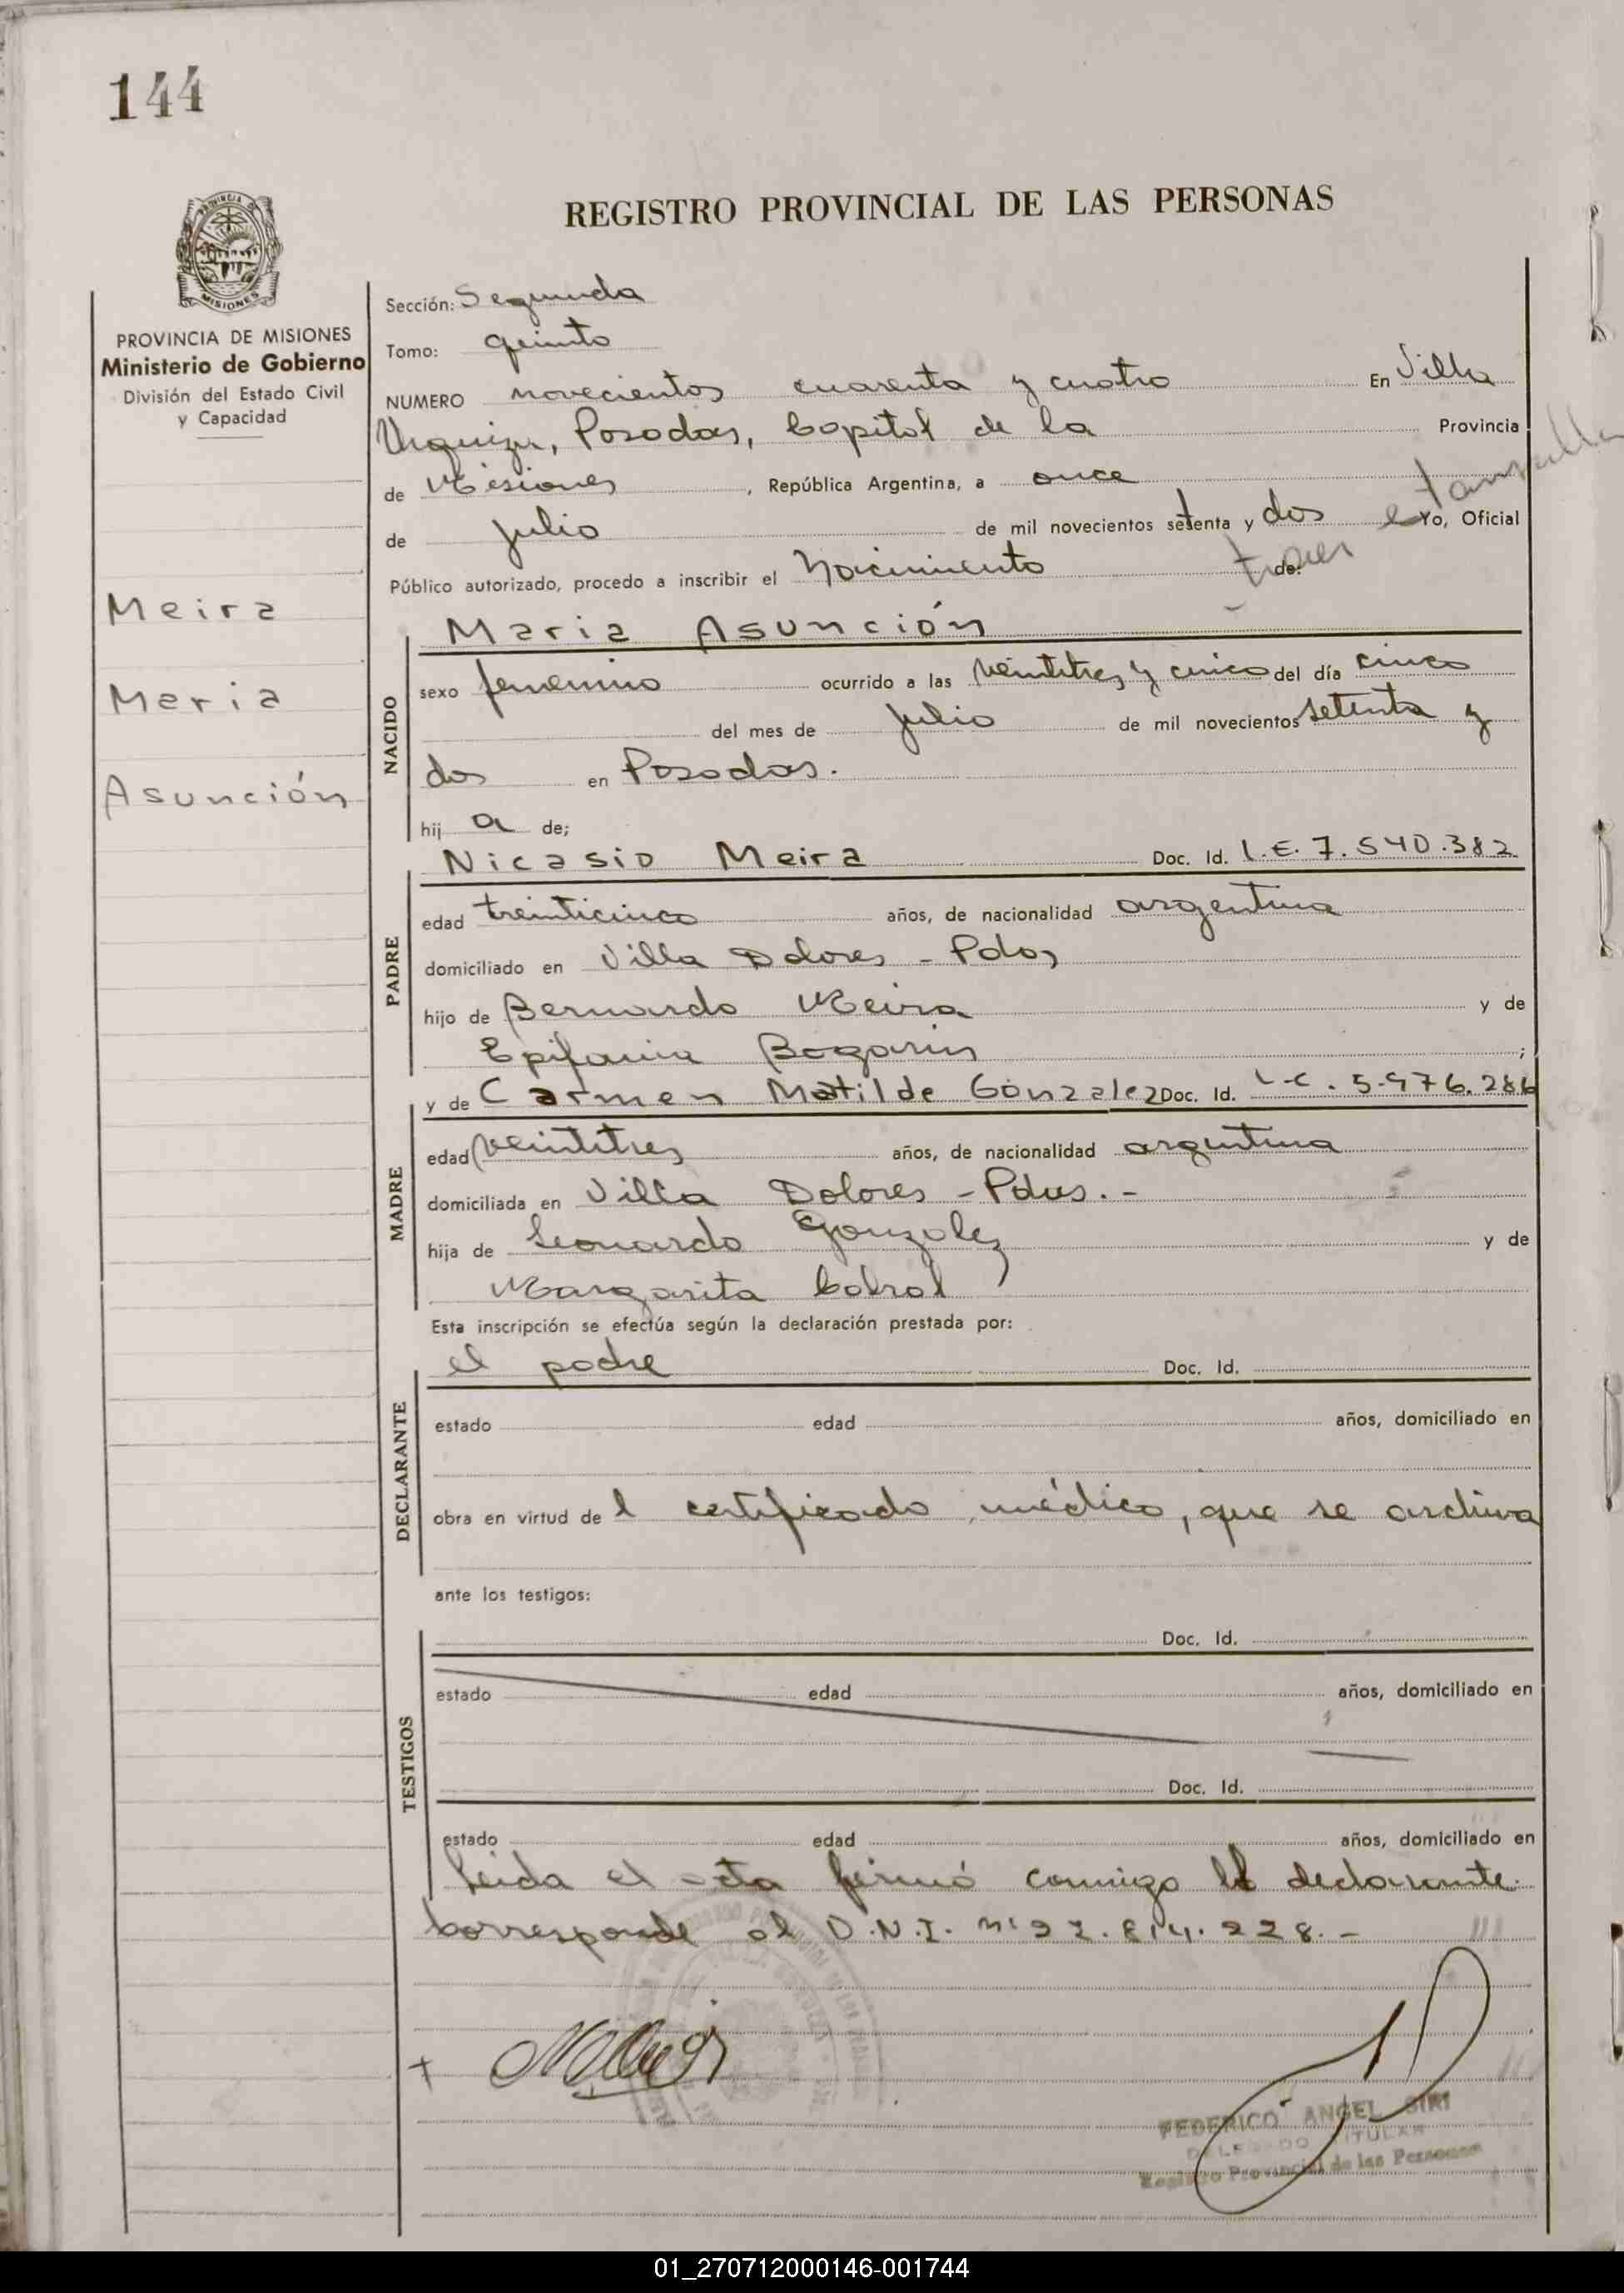 144
REGISTRO PROVINCIAL DE LAS PERSONAS
PROVINCIA DE
MISIONES
PROVINCIA DE MISIONES
Ministerio de Gobierno
División del Estado Civil
y Capacidad
Meira
Maria
Asunción
Sección: Segunda
Tomo: quinto
NUMERO novecientos cuarenta y cuatro En Villa
Urquiza, Posadas, Capital de la Provincia
de Misiones, República Argentina, a once
de julio de mil novecientos setenta y dos Yo, Oficial
Público autorizado, procedo a inscribir el Nacimiento de:
traer estampilla
Maria Asunción
NACIDO
sexo femenino ocurrido a las veintitres y cinco del día cinco
del mes de julio de mil novecientos setenta y
dos en Posadas.
hij a de;
PADRE
Nicasio Meira Doc. Id. L.E. 7.540.382
edad treinticinco años, de nacionalidad argentina
domiciliado en Villa Dolores - Pdas
hijo de Bernardo Meira y de
Epifania Bogarin ;
MADRE
y de Carmen Matilde Gonzalez Doc. Id. L.C. 5.976.286
edad veintitres años, de nacionalidad argentina
domiciliada en Villa Dolores - Pdas. -
hija de Leonardo Gonzalez y de
Margarita Cabral
Esta inscripción se efectúa según la declaración prestada por:
DECLARANTE
el padre Doc. Id.
estado edad años, domiciliado en
obra en virtud de l certificado médico, que se archiva
ante los testigos:
TESTIGOS
Doc. Id.
estado edad años, domiciliado en
Doc. Id.
estado edad años, domiciliado en
Leida el acta firmó conmigo el declarante.
Corresponde al D.N.I. nº 22.814.228. -
FEDERICO ANGEL SIRI
DELEGADO TITULAR
Registro Provincial de las Personas
01_270712000146-001744